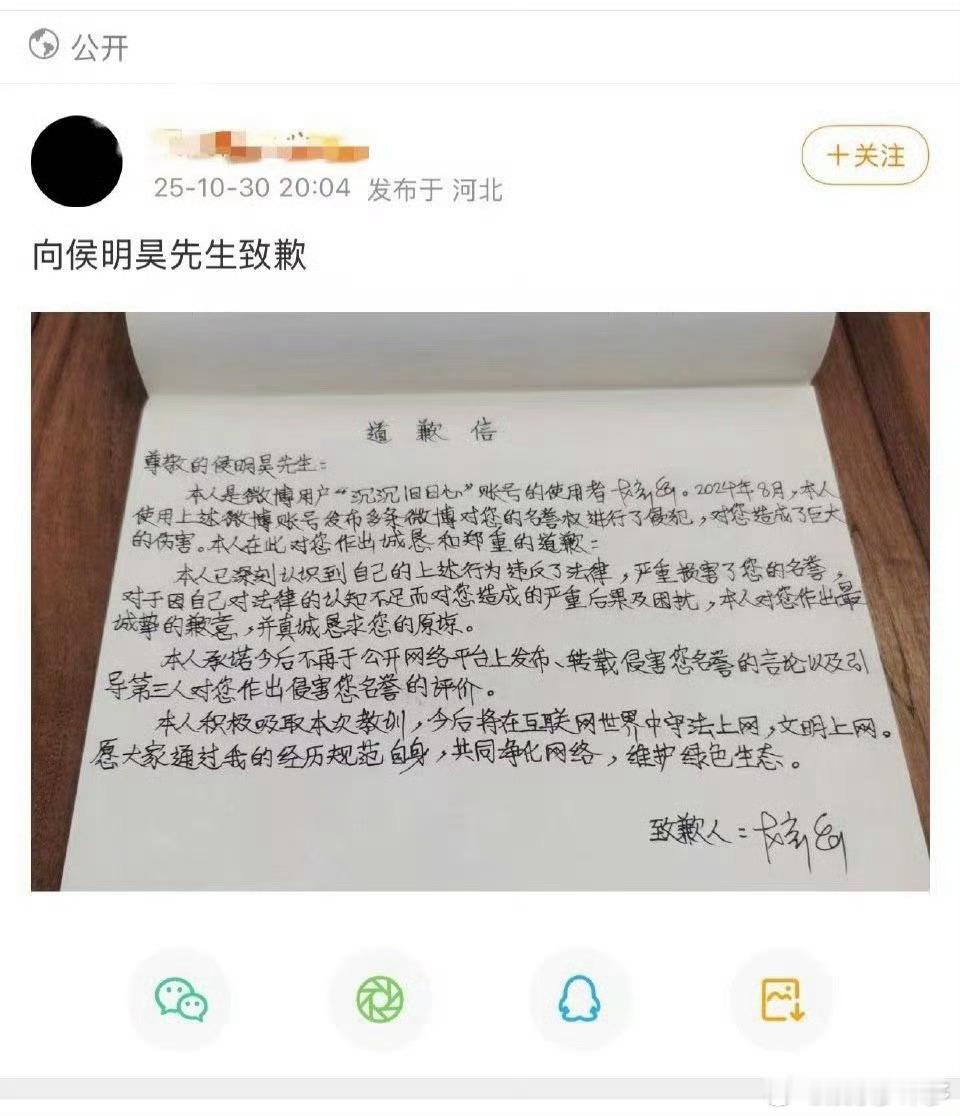 公开
25-10-30 20:04 发布于 河北
+关注
向侯明昊先生致歉
道歉信
尊敬的侯明昊先生:
本人是微博用户“沉沉旧日心”账号的使用者。2024年8月,本人
使用上述微博账号发布多条微博对您的名誉权进行了侵犯,对您造成了巨大
的伤害。本人在此对您作出城恳和郑重的道歉:
本人已深刻认识到自己的上述行为违反了法律,严重损害了您的名誉,
对于因自己对法律的认知不足而对您造成的严重后果及困扰,本人对您作出最
城挚的歉意,并真城恳求您的原谅。
本人承诺今后不再于公开网络平台上发布、转载侵害您名誉的言论以及引
导第三人对您作出侵害您名誉的评价。
本人积极吸取本次教训,今后将在互联网世界中守法上网,文明上网。
愿大家通过我的经历规范自身,共同净化网络,维护绿色生态。
致歉人: